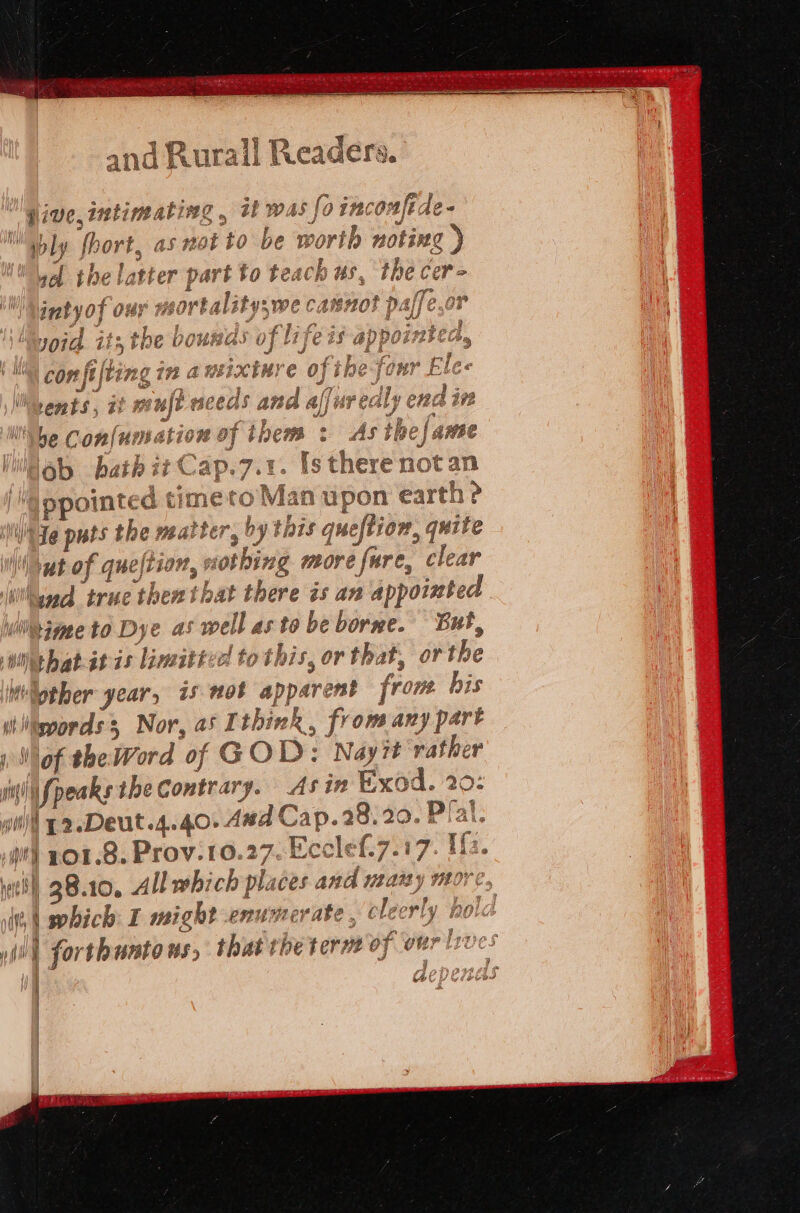 and Rurall Readers.
give, intimating, it was ſo inconſide-
bly ſhort, as not to be worth noting)
the latter part to teach us, the cer-
inty of our mortality; we cannot paſſe, or
void it; the bounds of life is appointed,
conſiſting in a mixture of the four Ele-
ments, it muſt needs and aſſuredly end in
the Conſumation of them : As the ſame
Job hath it Cap.7.1. Is there not an
appointed time to Man upon earth?
He puts the matter, by this queſtion, quite
out of queſtion, nothing more ſure, clear
and true then that there is an appointed
time to Dye as well as to be borne. But,
that it is limitted to this, or that, or the
other year, is not apparent from his
words; Nor, as I think, from any part
of the Word of GOD: Nay it rather
ſpeaks the Contrary. As in Exod. 20:
12. Deut.4.40. And Cap.28.20. Pſal.
101.8. Prov.10.27. Eccleſ.7.17. Iſa.
38.10. All which places and many more,
which I might enumerate, cleerly hold
forth unto us, that the term of our lives
depends